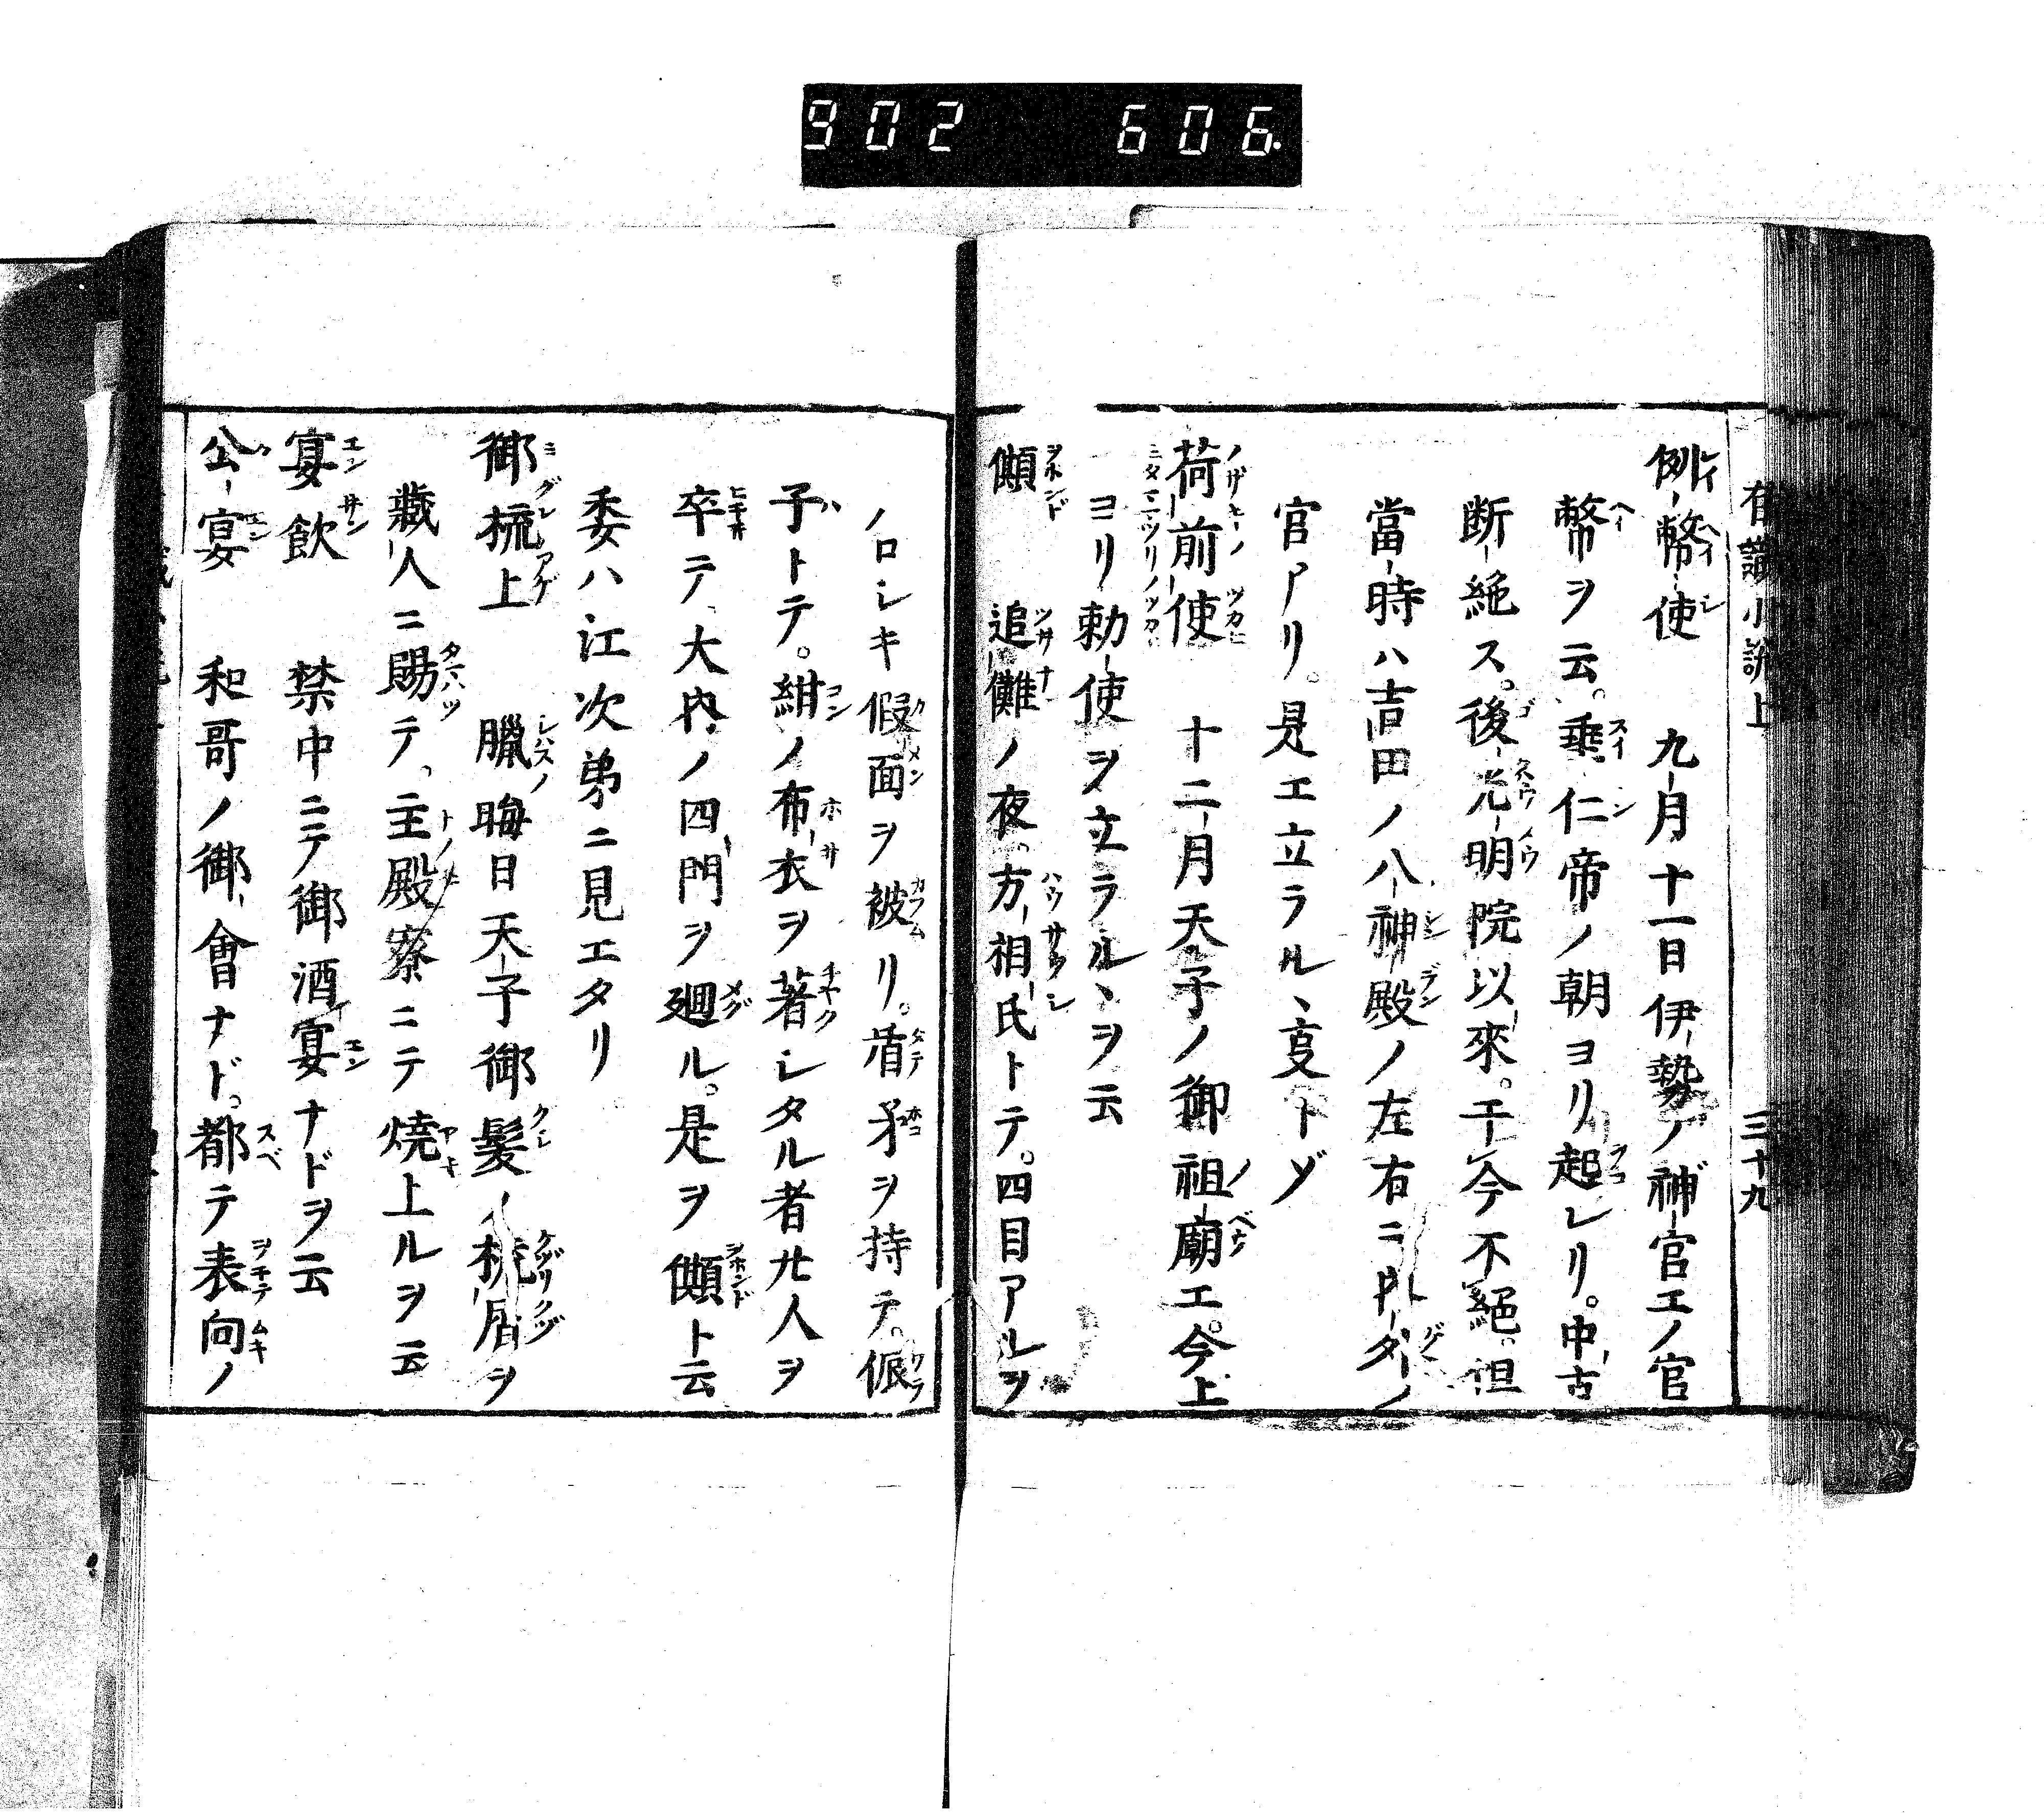 902 606.
有識小説上 三十九
例幣使 九月十一日伊勢ノ神官エノ官
幣ヲ云。垂仁帝ノ朝ヨリ起レリ。中古
断絶ス。後光明院以來。于今不絶。但
當時ハ吉田ノ八神殿ノ左右ニ
官アリ。是エ立ラル、㕝トゾ
荷前使 十二月天子ノ御祖廟エ。今上
ヨリ勅使ヲ立ラル、ヲ云
儺 追儺ノ夜。方相氏トテ。四目アルヲ
ノロシキ假面ヲ被リ。盾矛ヲ持テ。侲
子トテ。紺ノ布衣ヲ著シタル者廿人ヲ
卒テ、大内ノ四門ヲ廻ル。是ヲ儺ト云
委ハ江次弟ニ見エタリ
御梳上 臘晦日天子御髪ノ梳屑ヲ
藏人ニ賜テ、主殿寮ニテ燒上ルヲ云
宴飲 禁中ニテ御酒宴ナドヲ云
公宴 和哥ノ御會ナド。都テ表向ノ